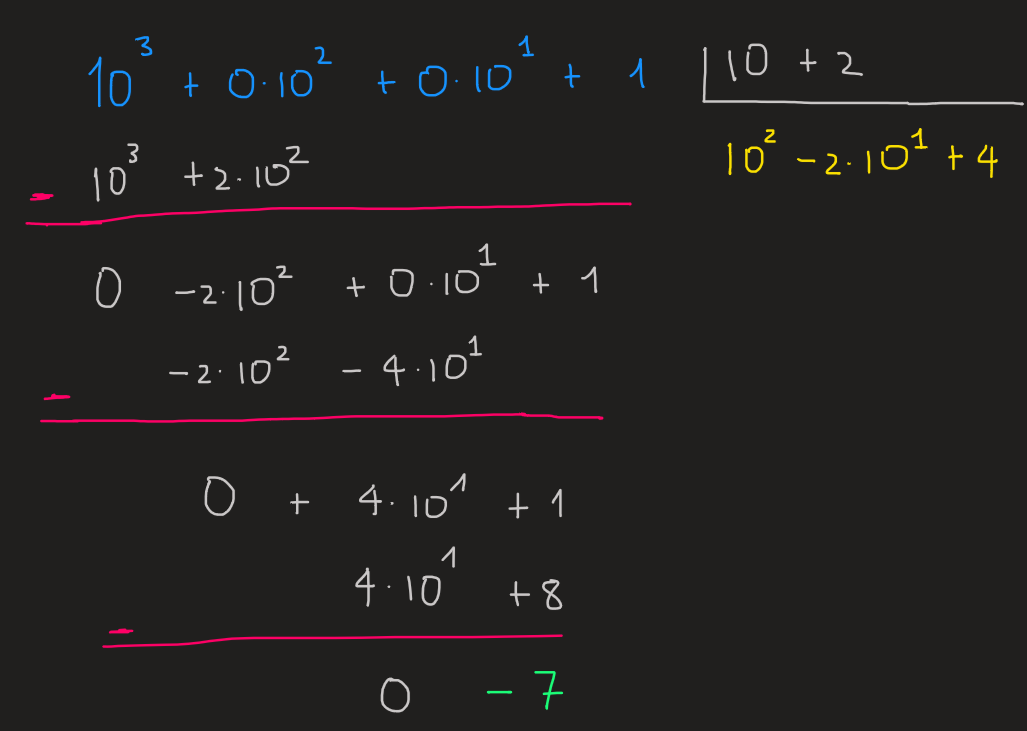 10³ + 0·10² + 0·10¹ + 1 | 10 + 2
10³ +2·10² 10² −2·10¹ +4
−
0 −2·10² + 0·10¹ + 1
−2·10² − 4·10¹
−
0 + 4·10¹ + 1
4·10¹ +8
−
0 −7